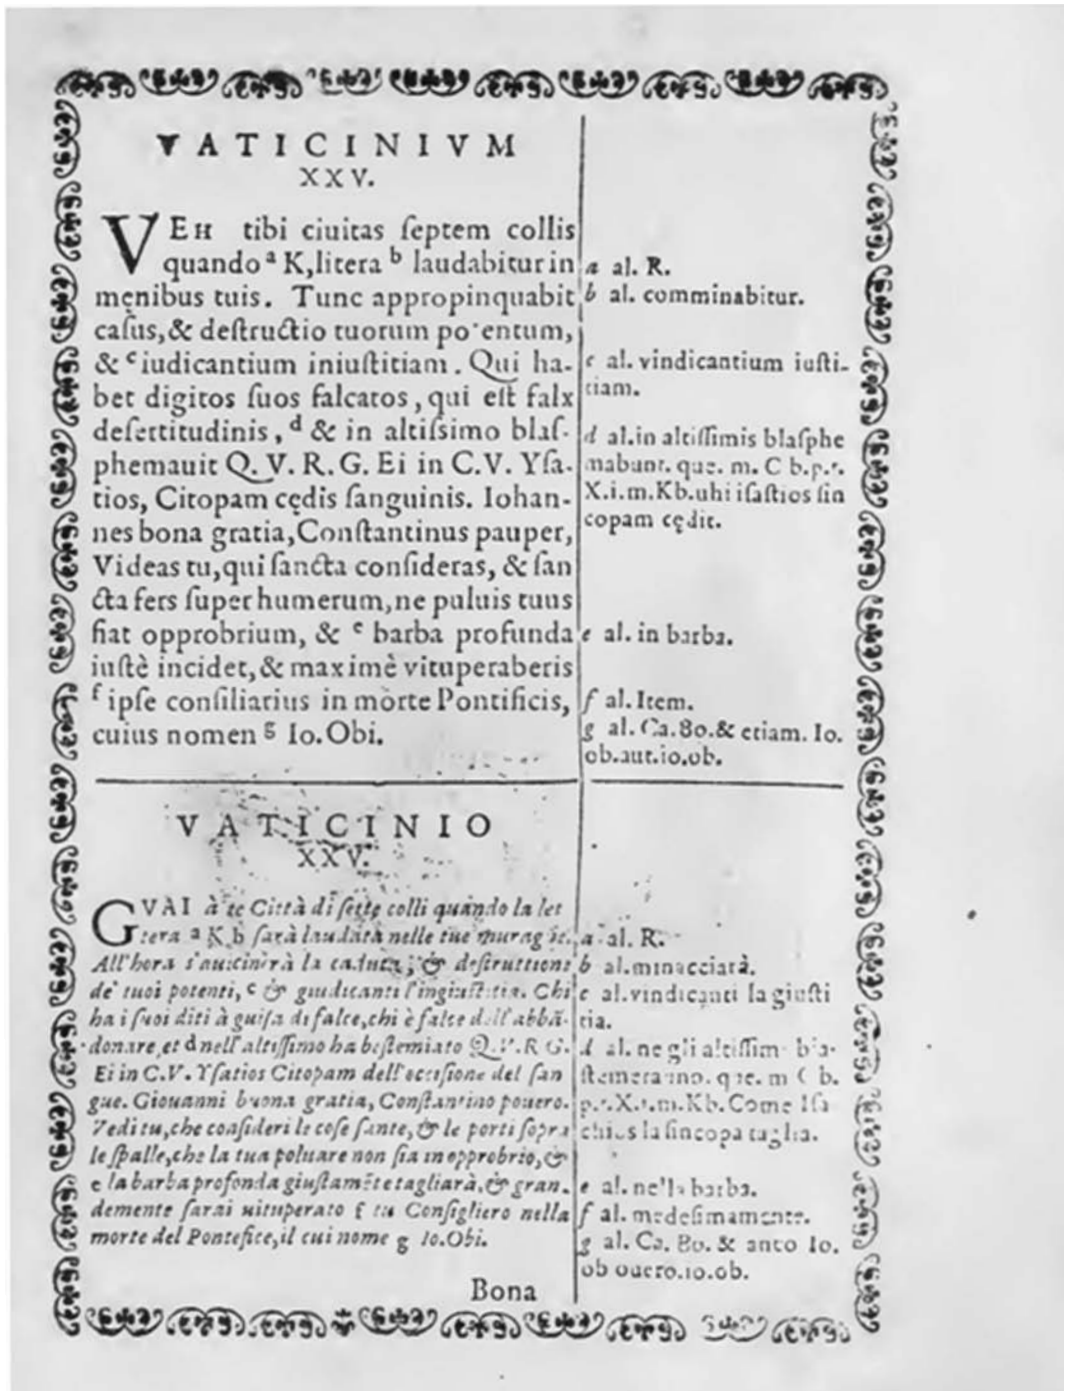 VATICINIVM
XXV.
VEH tibi ciuitas ſeptem collis
quando a K, litera b laudabitur in
męnibus tuis. Tunc appropinquabit
caſus, & deſtructio tuorum po entum,
& c iudicantium iniuſtitiam. Qui ha-
bet digitos ſuos falcatos, qui eſt falx
deſertitudinis, d & in altiſsimo blaſ-
phemauit Q. V. R. G. Ei in C. V. Yſa-
tios, Citopam cędis ſanguinis. Iohan-
nes bona gratia, Conſtantinus pauper,
Videas tu, qui ſancta conſideras, & ſan
cta fers ſuper humerum, ne puluis tuus
fiat opprobrium, & e barba profunda
iuſtè incidet, & maximè vituperaberis
f ipſe conſiliarius in morte Pontificis,
cuius nomen g Io. Obi.
a al. R.
b al. comminabitur.
c al. vindicantium iuſti-
tiam.
d al. in altiſſimis blaſphe
mabunt. que. m. C b. p. r.
X. i. m. Kb. uhi iſaſtios ſin
copam cędit.
e al. in barba.
f al. Item.
g al. Ca. 80. & etiam. Io.
ob. aut. io. ob.
VATICINIO
XXV.
GVAI à te Città di ſette colli quando la let
tera a K b ſarà laudata nelle tue
All'hora s'auicinerà la caduta, & deſtruttione
de' tuoi potenti, c & giudicanti l'ingiuſtitia. Chi
ha i ſuoi diti à guiſa di falce, chi è falce dell'abbā-
donare, et d nell'altiſſimo ha beſtemiato Q. V. R G.
Ei in C. V. Yſatios Citopam dell'occiſione del ſan
gue. Giouanni buona gratia, Conſtantino pouero.
Vedi tu, che conſideri le coſe ſante, & le porti ſopra
le ſpalle, che la tua poluare non ſia in opprobrio, &
e la barba profonda giuſtamēte tagliarà, & gran-
demente ſarai uituperato f tu Conſigliero nella
morte del Pontefice, il cui nome g Io. Obi.
a al. R.
b al. minacciatà.
c al. vindicanti la giuſti
tia.
d al. negli altiſſimi bla-
ſtemeranno. que. m C b.
p. r. X. i. m. Kb. Come Iſa
chios la ſincopa taglia.
e al. nella barba.
f al. medeſimamente.
g al. Ca. 80. & anco Io.
ob ouero. io. ob.
Bona